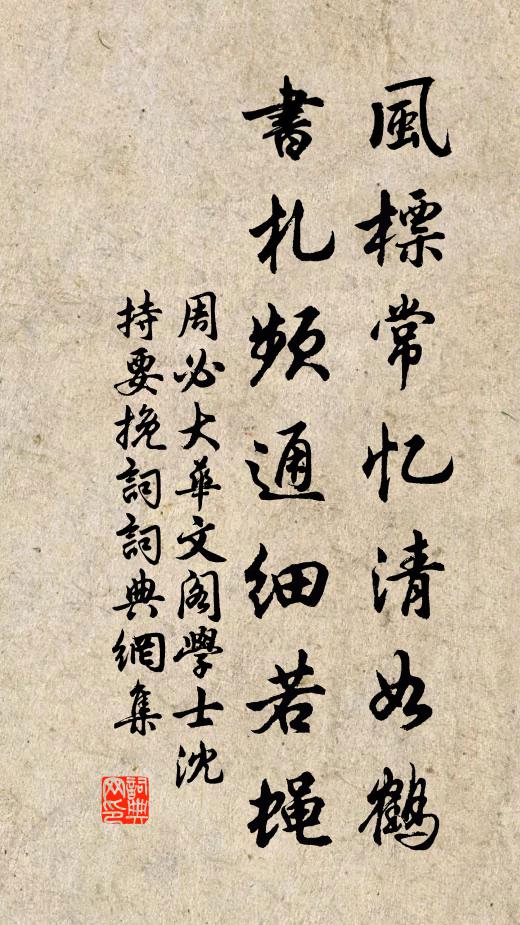 風標常忆清如鶴
書札頻通细若蝇
周必大華文阁學士沈
持要挽詞詞典網集
詞典
网印